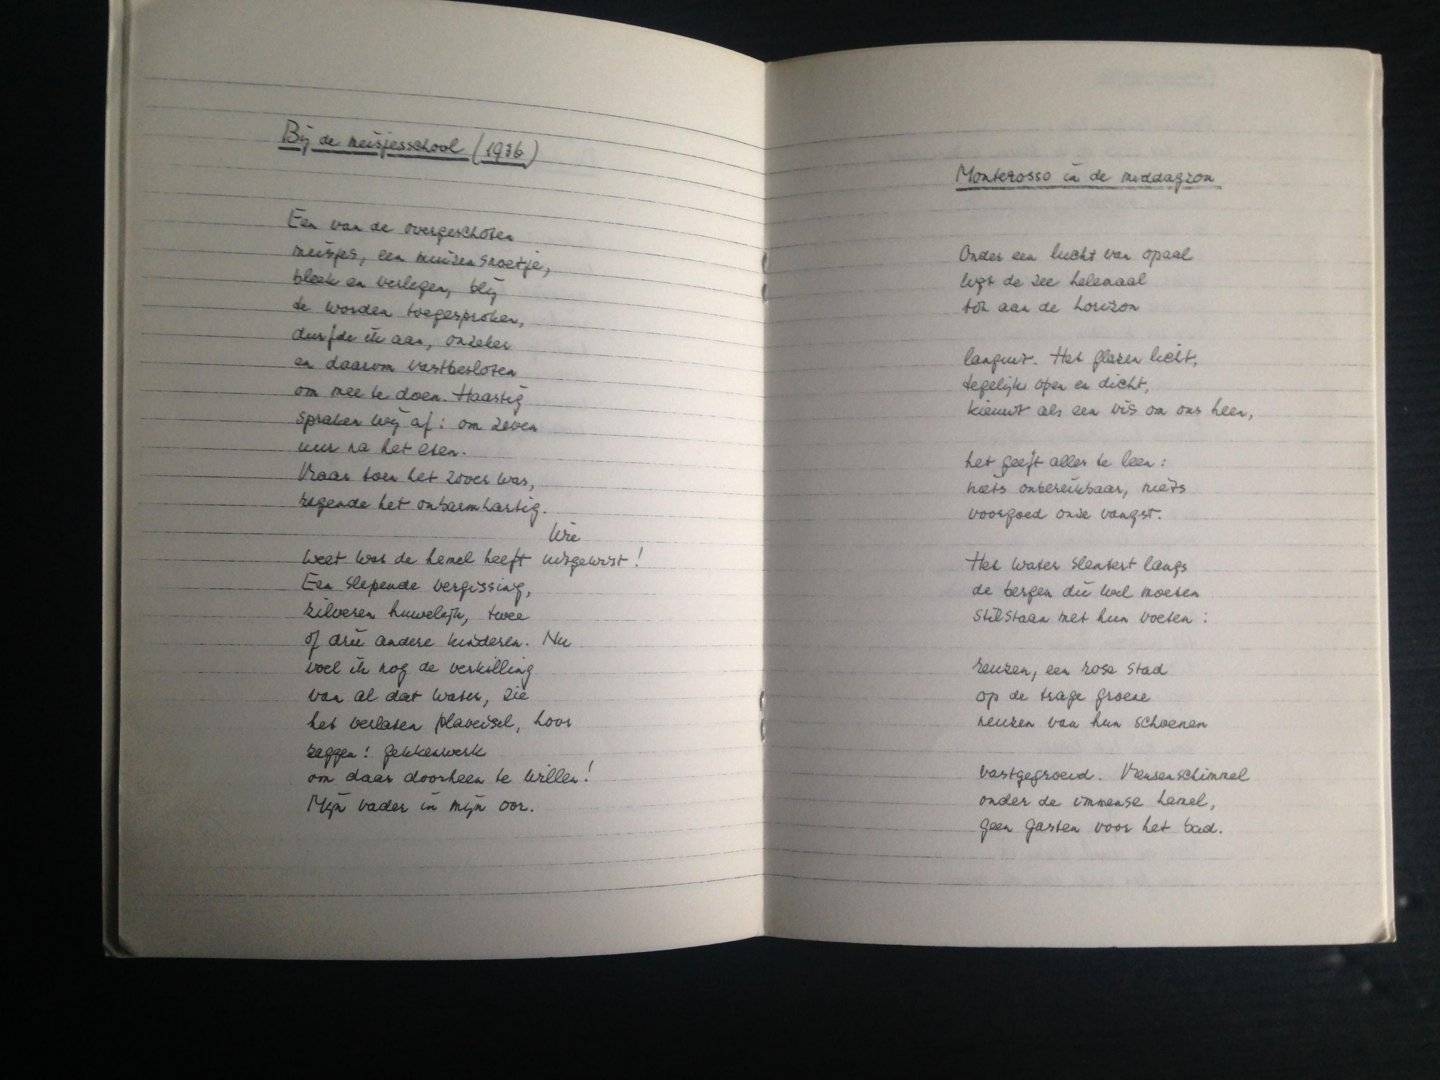 Bij de meisjesschool (1936)
Een van de overgeschoten
meisjes, een muizensnoetje,
bleek en verlegen, blij
te worden toegesproken,
durfde ik aan, onzeker
en daarom vastbesloten
om mee te doen. Haastig
spraken wij af: om zeven
uur na het eten.
Maar toen het zover was,
regende het onbarmhartig.
Wie
weet wat de hemel heeft uitgewist!
Een slepende vergissing,
zilveren huwelijk, twee
of drie andere kinderen. Nu
voel ik nog de verkilling
van al dat water, zie
het verlaten plaveisel, hoor
zeggen: gekkenwerk
om daar doorheen te willen!
Mijn vader in mijn oor.
Monterosso in de middagzon
Onder een lucht van opaal
ligt de zee helemaal
tot aan de horizon
languit. Het glazen licht,
tegelijk open en dicht,
kieuwt als een vis om ons heen,
het geeft alles te leen:
niets onbereikbaar, niets
voorgoed onze vangst.
Het water slentert langs
de bergen die wel moeten
stilstaan met hun voeten:
reuzen, een roze stad
op de trage groene
neuzen van hun schoenen
vastgegroeid. Mensenschimmel
onder de immense hemel,
geen gasten voor het bad.